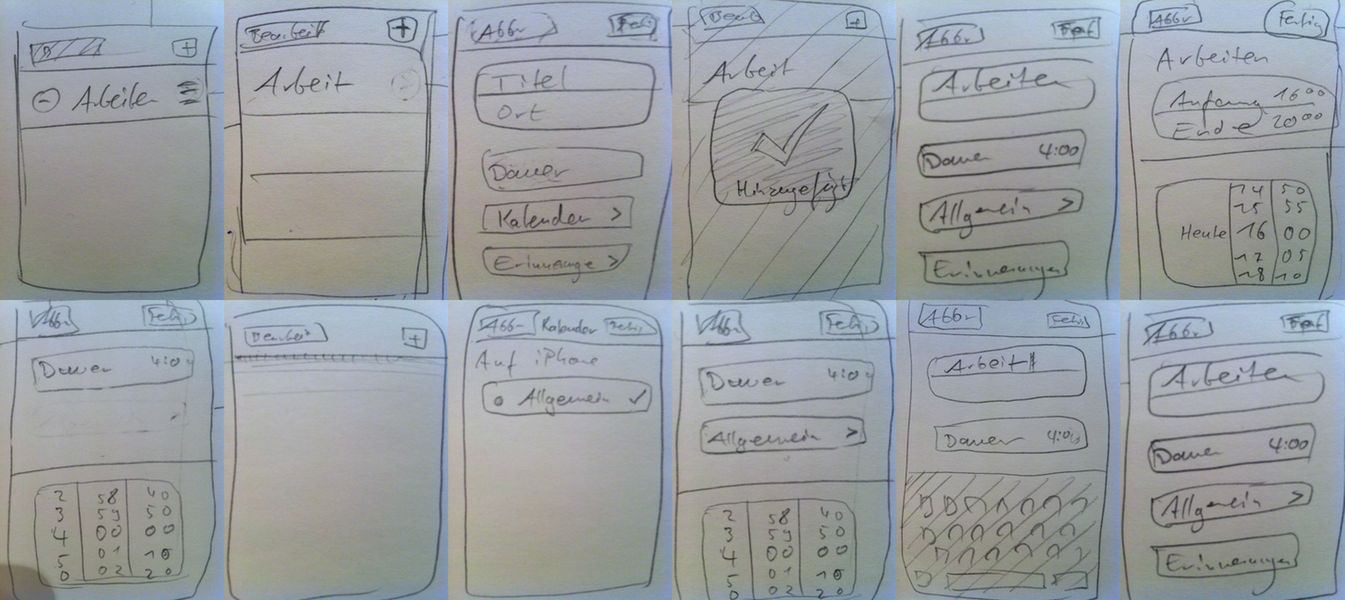 +
Arbeiten
Bearbeit
+
Arbeit
Abbr
Ferti
Titel
Ort
Dauer
Kalender >
Erinnerunge >
Bearb
+
Arbeit
Hinzugefügt
Abbr
Fert
Arbeiten
Dauer 4:00
Allgemein >
Erinnerungen
Abbr
Fertig
Arbeiten
Anfang 16 00
Ende 20 00
14 50
15 55
Heute 16 00
17 05
18 10
Abbr
Ferti
Dauer 4:00
2 58 40
3 59 50
4 00 00
5 01 10
0 02 20
Bearbeit
+
Abbr Kalender Ferti
Auf iPhone
Allgemein ✓
Abbr
Ferti
Dauer 4:00
Allgemein >
2 58 40
3 59 50
4 00 00
5 01 10
0 02 20
Abbr
Ferti
Arbeit
Dauer 4:00
Abbr
Fert
Arbeiten
Dauer 4:00
Allgemein >
Erinnerungen